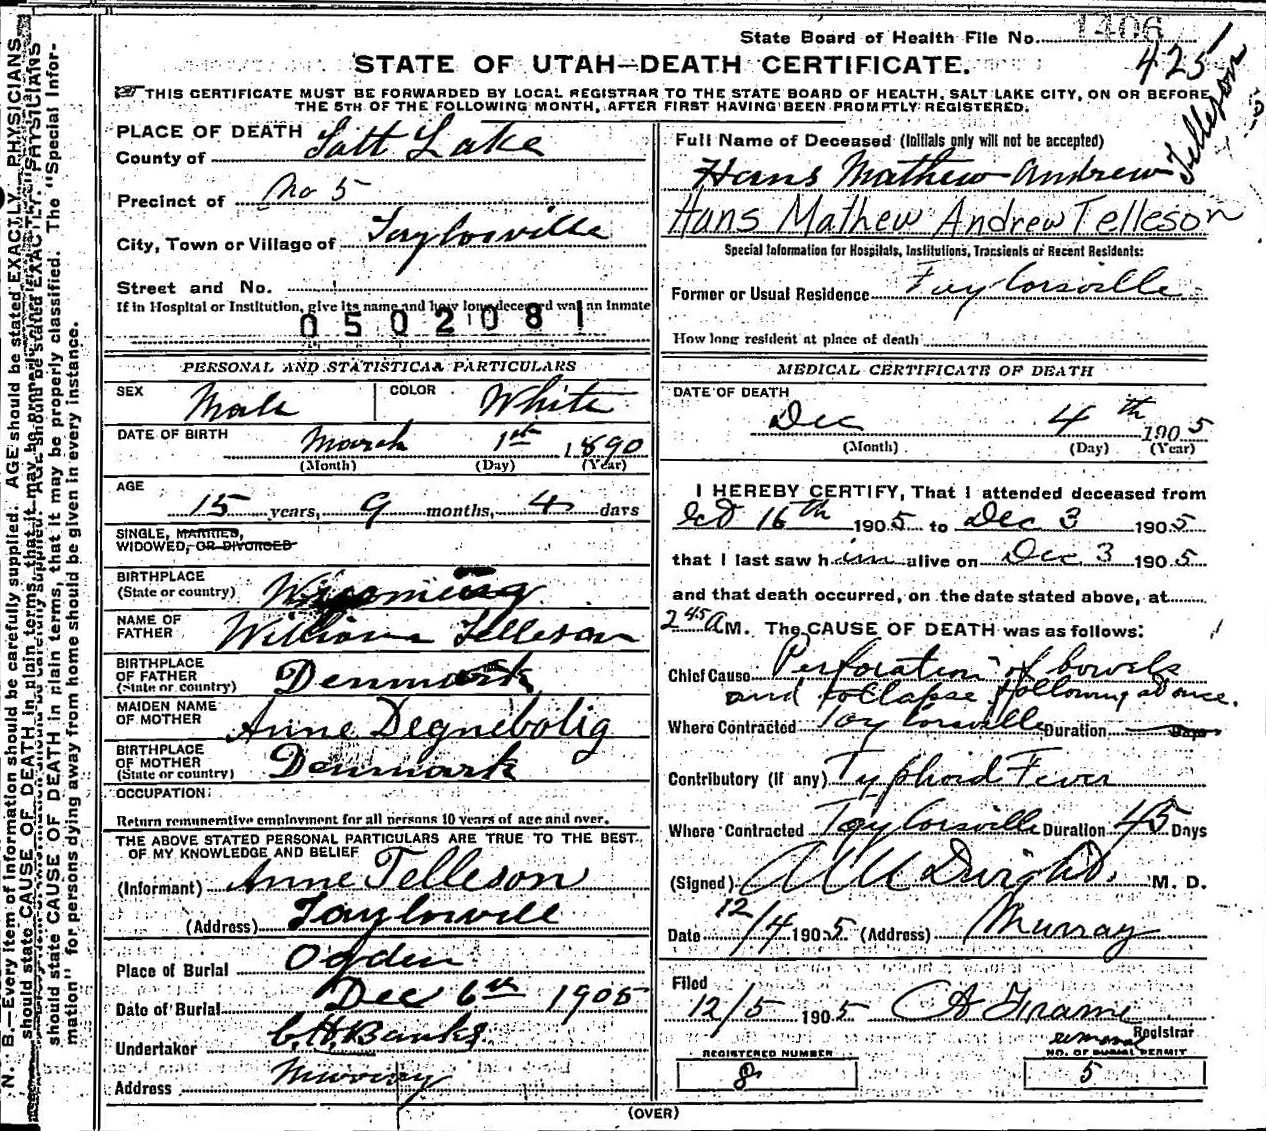 State Board of Health File No. 1406
425
Telleson
STATE OF UTAH—DEATH CERTIFICATE.
THIS CERTIFICATE MUST BE FORWARDED BY LOCAL REGISTRAR TO THE STATE BOARD OF HEALTH, SALT LAKE CITY, ON OR BEFORE
THE 5TH OF THE FOLLOWING MONTH, AFTER FIRST HAVING BEEN PROMPTLY REGISTERED.
PLACE OF DEATH
County of Salt Lake
Precinct of No 5
City, Town or Village of Taylorsville
Street and No.
If in Hospital or Institution, give its name and how long deceased was an inmate
0502081
PERSONAL AND STATISTICAL PARTICULARS
SEX Male COLOR White
DATE OF BIRTH March 1st 1890
(Month) (Day) (Year)
AGE
15 years, 9 months, 4 days
SINGLE, MARRIED,
WIDOWED, OR DIVORCED
BIRTHPLACE
(State or country) Wyoming
NAME OF
FATHER William Telleson
BIRTHPLACE
OF FATHER
(State or country) Denmark
MAIDEN NAME
OF MOTHER Anne Degnebolig
BIRTHPLACE
OF MOTHER
(State or country) Denmark
OCCUPATION:
Return remunerative employment for all persons 10 years of age and over.
THE ABOVE STATED PERSONAL PARTICULARS ARE TRUE TO THE BEST
OF MY KNOWLEDGE AND BELIEF
(Informant) Anne Telleson
(Address) Taylorsvill
Place of Burial Ogden
Date of Burial Dec 6th 1905
Undertaker C.H. Banks
Address Murray
Full Name of Deceased (Initials only will not be accepted)
Hans Mathew Andrew
Hans Mathew Andrew Telleson
Special Information for Hospitals, Institutions, Transients or Recent Residents:
Former or Usual Residence Taylorsville
How long resident at place of death
MEDICAL CERTIFICATE OF DEATH
DATE OF DEATH
Dec 4th 1905
(Month) (Day) (Year)
I HEREBY CERTIFY, That I attended deceased from
Oct 16th 1905 to Dec 3 1905
that I last saw him alive on Dec 3 1905
and that death occurred, on the date stated above, at
2 45 A M. The CAUSE OF DEATH was as follows:
Chief Cause Perforation of bowels
and collapse following at once.
Where Contracted Taylorsville Duration Days
Contributory (if any) Typhoid Fever
Where Contracted Taylorsville Duration 45 Days
(Signed) Dwight M. D.
Date 12/4 1905 (Address) Murray
Filed
12/5 1905 Frame
Registrar
removal
REGISTERED NUMBER
8
NO. OF BURIAL PERMIT
5
(OVER)
N. B.—Every item of information should be carefully supplied. AGE should be stated EXACTLY. PHYSICIANS
should state CAUSE OF DEATH in plain terms, that it may be properly classified. The "Special Infor-
mation" for persons dying away from home should be given in every instance.